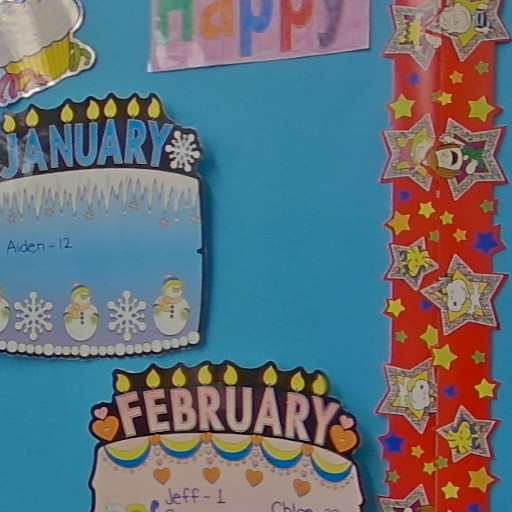 Happy
JANUARY
Aiden-12
FEBRUARY
Jeff-1